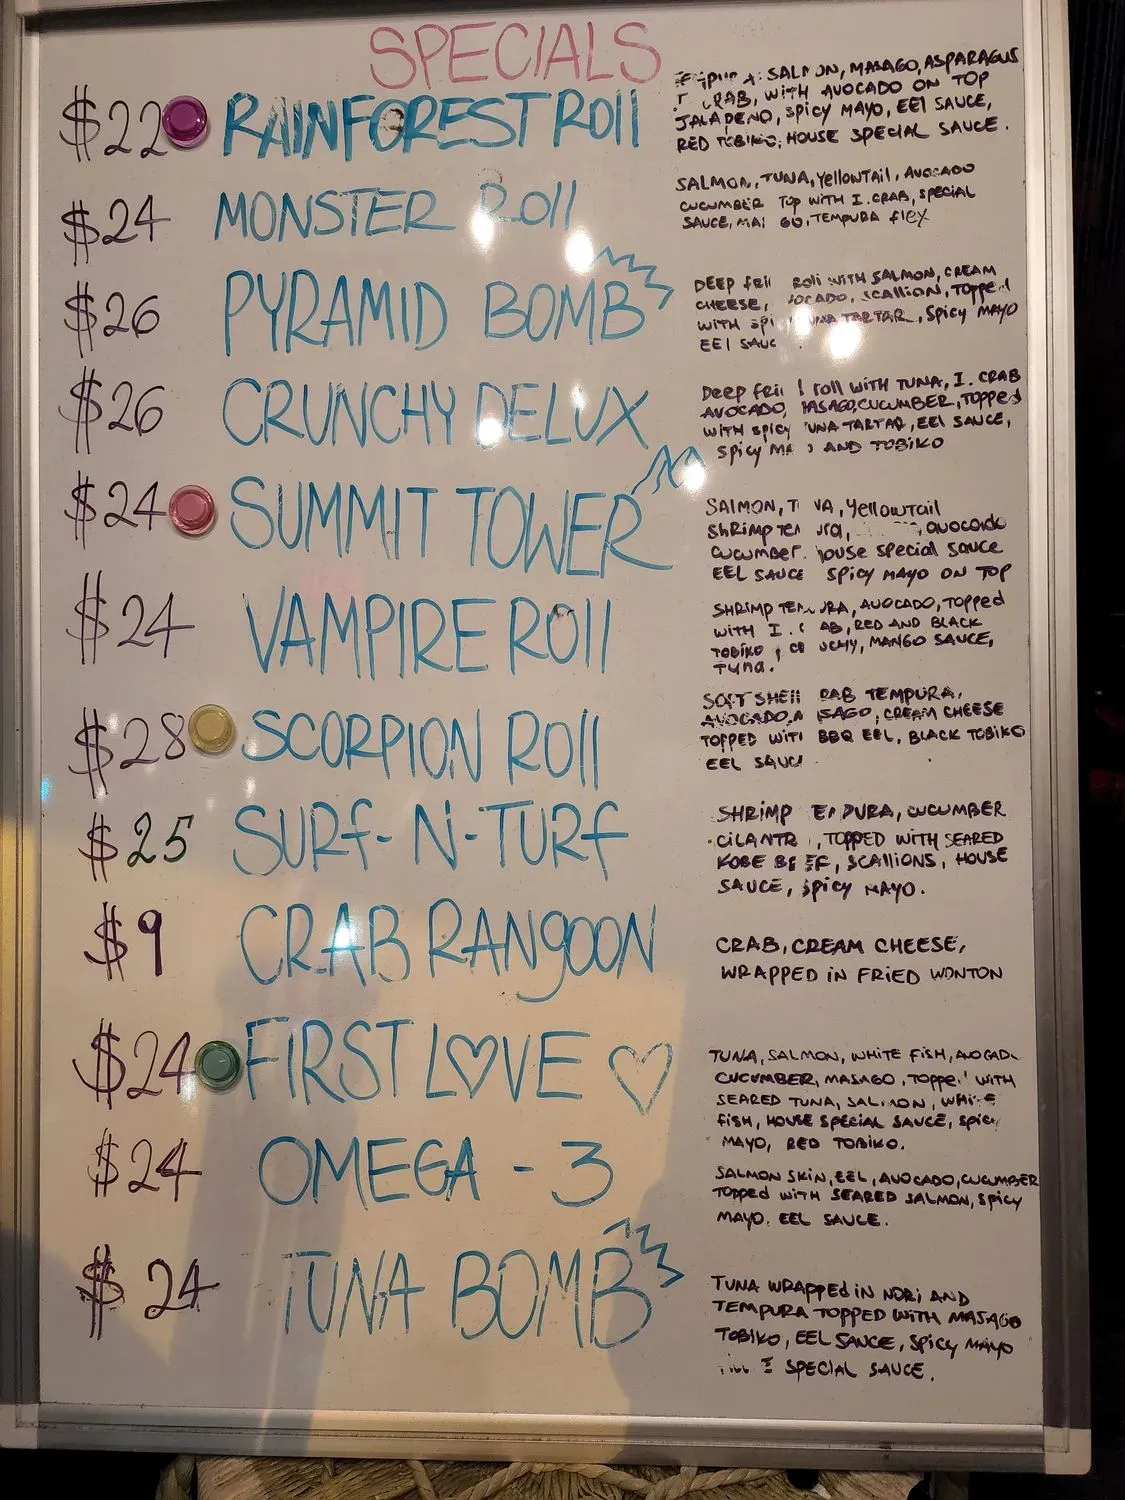 SPECIALS
$22 RAINFOREST ROll
SALMON, MASAGO, ASPARAGUS
CRAB, WITH AVOCADO ON TOP
JALAPENO, SPICY MAYO, EEl SAUCE,
RED TOBIKO, HOUSE SPECIAL SAUCE.
$24 MONSTER ROll
SALMON, TUNA, YEllOWTAIl, AVOCADO
CUCUMBER TOP WITH I. CRAB, SPECIAL
SAUCE, TEMPURA flEX
$26 PYRAMID BOMB
DEEP ROll WITH SALMON, CREAM
CHEESE, SCALLION, TOPPEd
WITH TARTAR, SPICY MAYO
EEl SAUC
$26 CRUNCHY DELUX
DEEP FRII ROll WITH TUNA, I. CRAB
AVOCADO, MASAGO, CUCUMBER, TOPPEd
WITH SPICY TUNA TARTAR, EEl SAUCE,
SPICY AND TOBIKO
$24 SUMMIT TOWER
SALMON, YEllOWTAIL
SHRIMP AVOCADO
CUCUMBER. HOUSE SPECIAL SAUCE
EEL SAUCE SPICY MAYO ON TOP
$24 VAMPIRE ROll
SHRIMP AVOCADO, TOPPEd
WITH I. RED AND BLACK
TOBIKO, MANGO SAUCE,
TUNA.
$28 SCORPION ROll
SOFT SHEll TEMPURA,
AVOCADO, CREAM CHEESE
TOPPED WITH BBQ EEL, BLACK TOBIKO
EEL SAUC
$25 SURF-N-TURF
SHRIMP CUCUMBER
CILANTR, TOPPED WITH SEARED
KOBE BEEF, SCAllIONS, HOUSE
SAUCE, SPICY MAYO.
$9 CRAB RANGOON
CRAB, CREAM CHEESE,
WRAPPED IN FRIED WONTON
$24 FIRST LOVE
TUNA, SALMON, WHITE FISH, AVOCAD
CUCUMBER, MASAGO, TOPPEd WITH
SEARED TUNA, SALMON, WHITE
FISH, HOUSE SPECIAL SAUCE, SPICY
MAYO, RED TOBIKO.
$24 OMEGA - 3
SALMON SKIN, EEL, AVOCADO, CUCUMBER
TOPPED WITH SEARED SALMON, SPICY
MAYO, EEL SAUCE.
$24 TUNA BOMB
TUNA WRAPPEd IN NORI AND
TEMPURA TOPPED WITH MASAGO
TOBIKO, EEL SAUCE, SPICY MAYO
SPECIAL SAUCE.